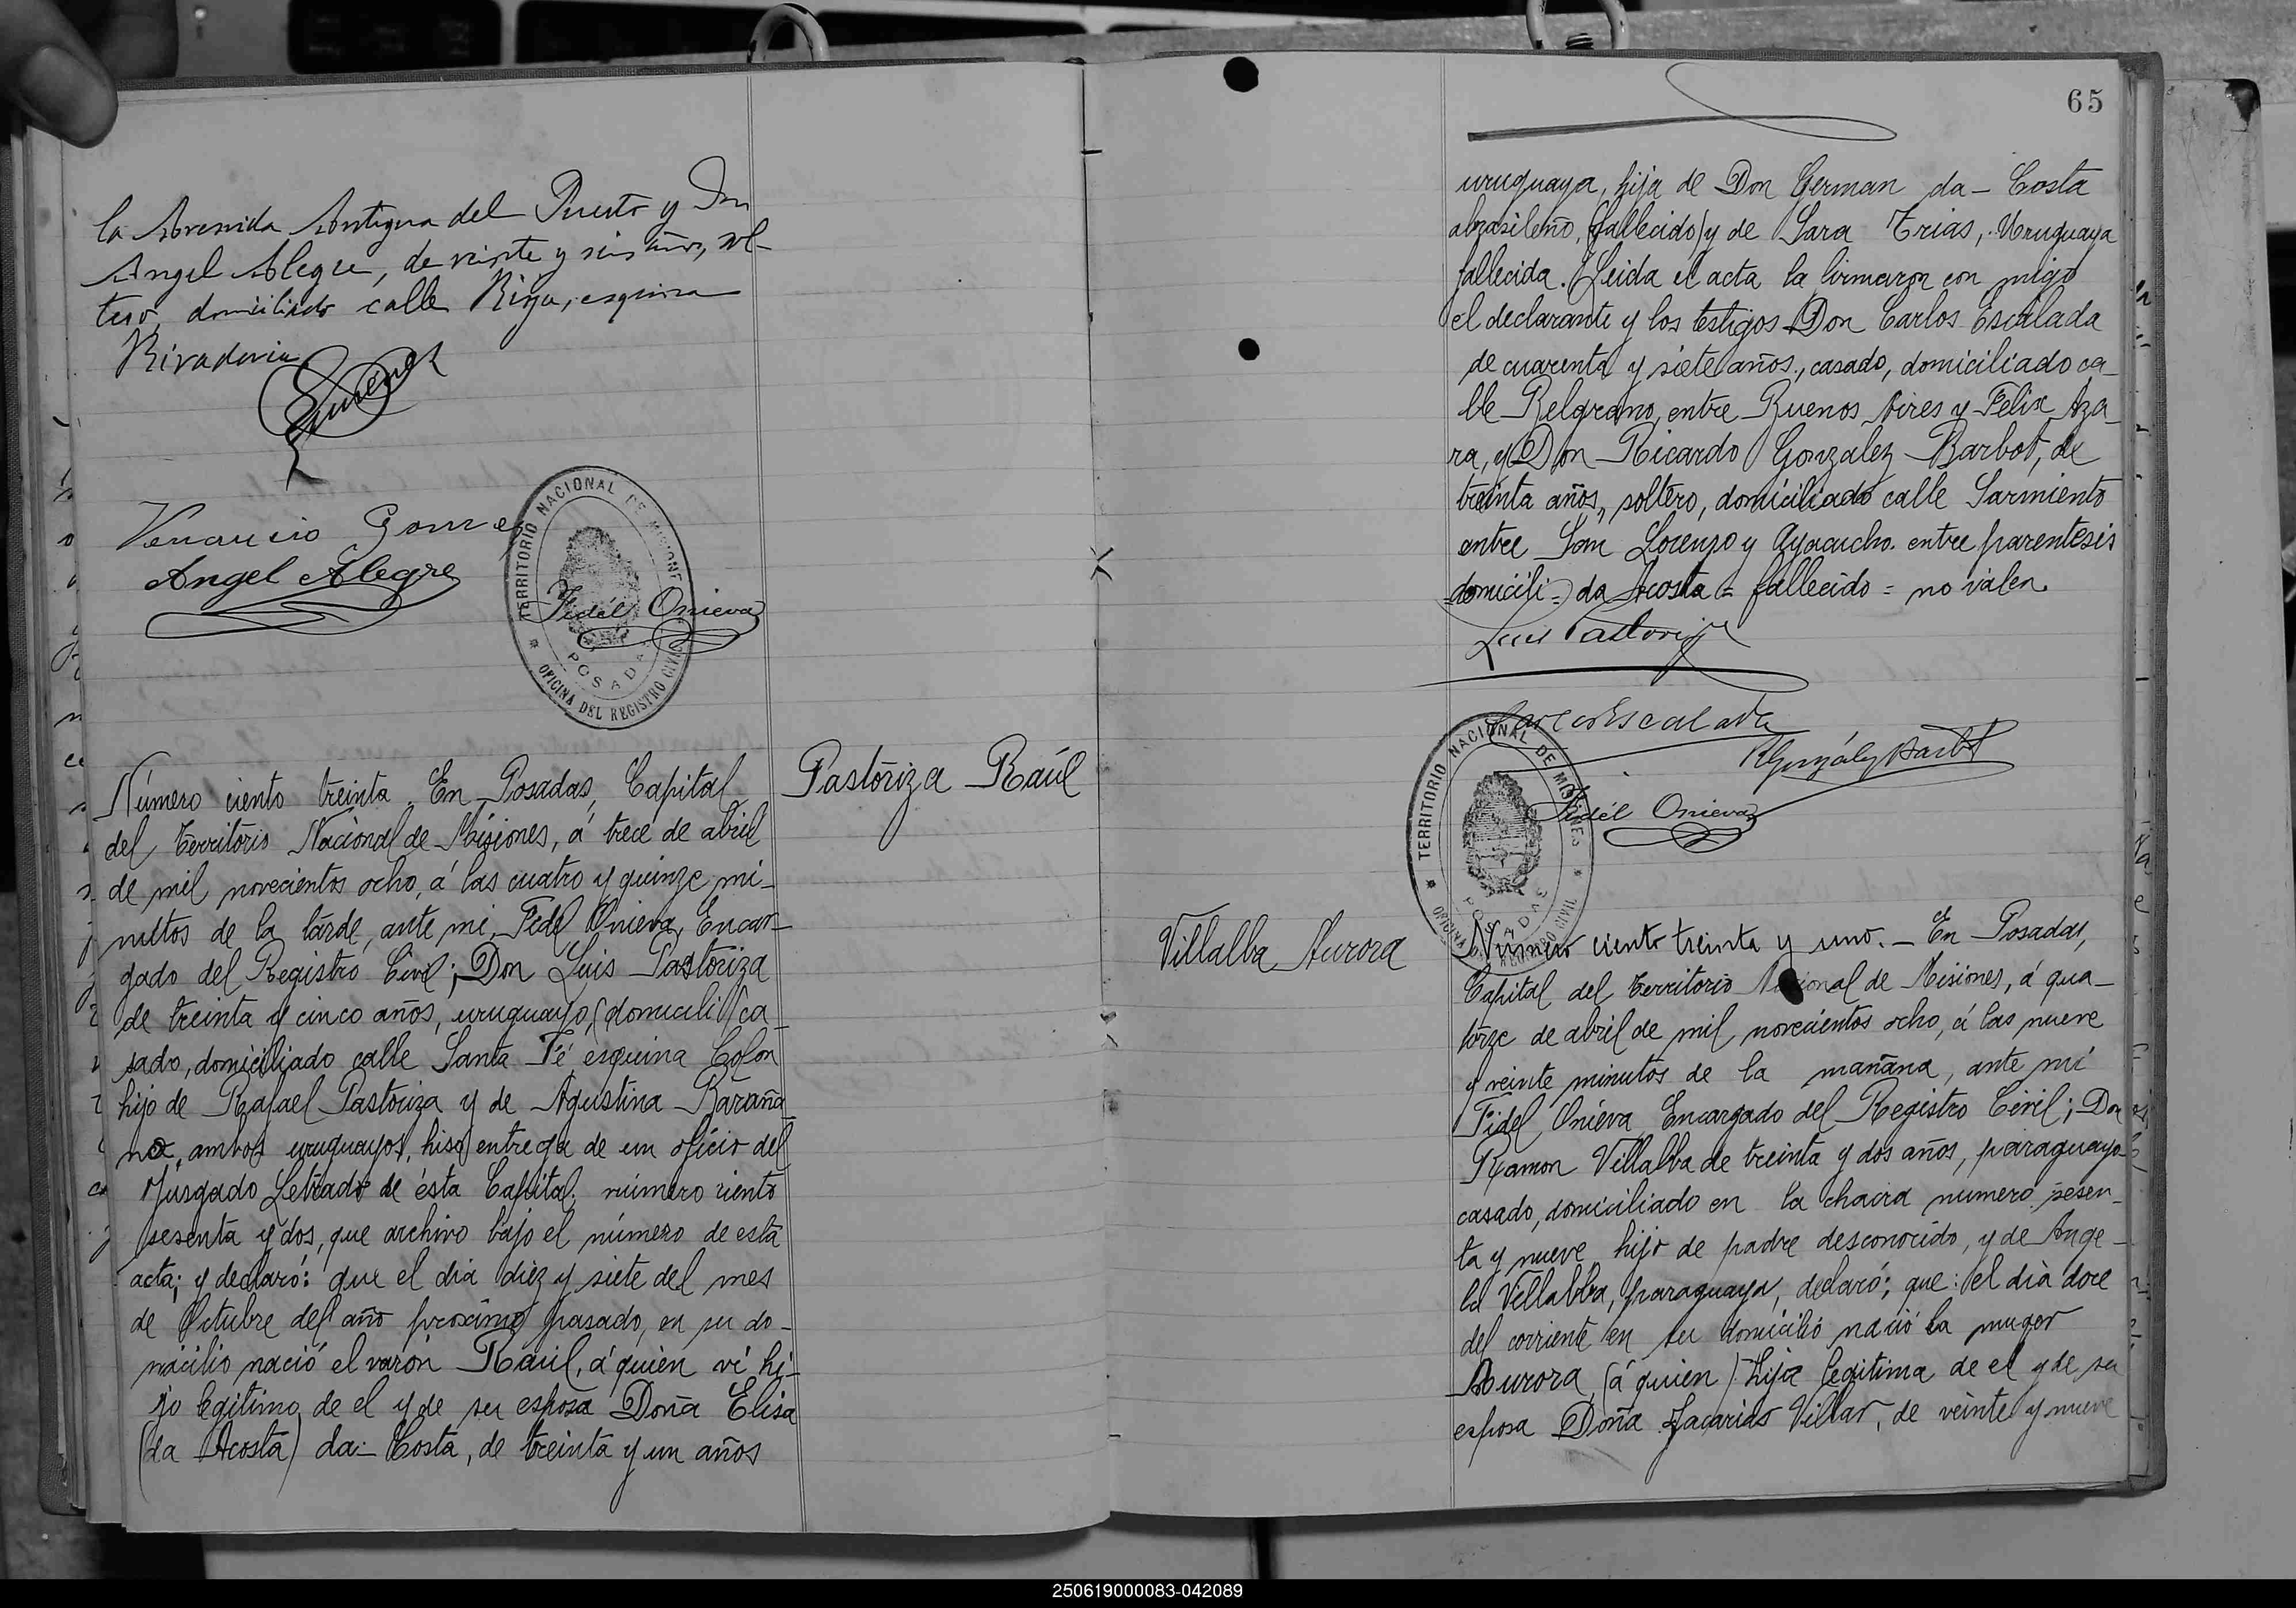 la Avenida Antigua del Puerto y Don
Angel Alegre, de veinte y seis años, sol-
tero, domiciliado calle Rioja, esquina
Rivadavia
Gimenez
Venancio Gomez
Angel Alegre
TERRITORIO NACIONAL DE MISIONES
POSADAS
OFICINA DEL REGISTRO CIVIL
Fidél Onieva
Pastoriza Raúl
Número ciento treinta. En Posadas, Capital
del Territorio Nacional de Misiones, á trece de abril
de mil novecientos ocho, á las cuatro y quinze mi-
nutos de la tarde, ante mi, Fidel Onieva, Encar-
gado del Registro Civil; Don Luis Pastoriza
de treinta y cinco años, uruguayo, (domicili) ca-
sado, domiciliado calle Santa Fé esquina Colon
hijo de Rafael Pastoriza y de Agustina Baraña
no, ambos uruguayos, hiso entrega de un oficio del
Jusgado Letrado de ésta Capital, número ciento
sesenta y dos, que archivo bajo el número de esta
acta; y declaró: que el dia diez y siete del mes
de Octubre del año proximo pasado, en su do-
micilio nació el varon Raúl, á quien ví hi-
jo legitimo de el y de su esposa Doña Elisa
(da Acosta) da- Costa, de treinta y un años
65
uruguaya, hija de Don German da- Costa
abrasileño, (fallecido) y de Sara Trias, Uruguaya
fallecida. Leida el acta la firmaron con migo
el declarante y los testigos Don Carlos Escalada
de cuarenta y siete años, casado, domiciliado ca-
lle Belgrano, entre Buenos Aires y Felix Aza-
ra, y Don Ricardo Gonzalez Barbot, de
treinta años, soltero, domiciliado calle Sarmiento
entre San Lorenzo y Ayacucho. entre parentesis
=domicili=) da Acosta = fallecido = no valen.
Luis Pastoriza
Carlos Escalada
RGonzález Barbot
TERRITORIO NACIONAL DE MISIONES
POSADAS
OFICINA DEL REGISTRO CIVIL
Fidél Onieva
Villalba Aurora
Número ciento treinta y uno. - En Posadas,
Capital del Territorio Nacional de Misiones, á qua-
torze de abril de mil novecientos ocho, á las nueve
y veinte minutos de la mañana, ante mí
Fidel Onieva Encargado del Registro Civil; Don
Ramon Villalba de treinta y dos años, paraguayo
casado, domiciliado en la chacra numero sesen-
ta y nueve, hijo de padre desconocido, y de Ange-
la Villalba, paraguaya, declaró; que: el dia doce
del corriente en su domicilio nació la muger
Aurora (á quien) hija legitima de el y de su
esposa Doña Zacarias Villar, de veinte y nueve
250619000083-042089